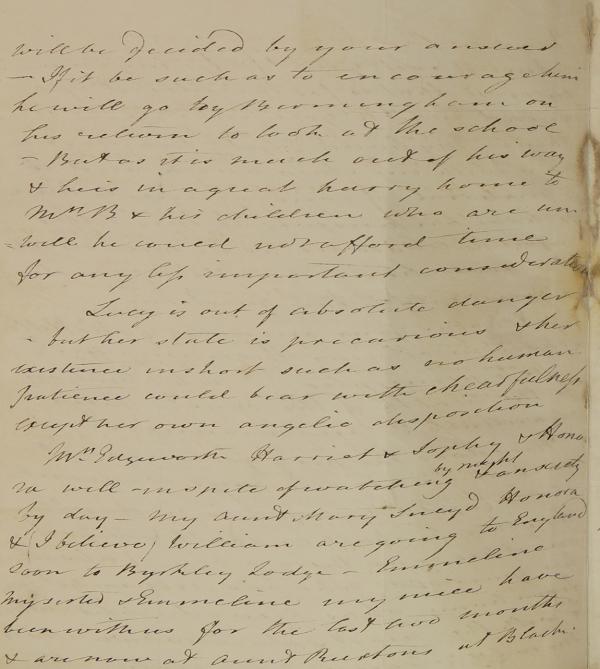 will be decided by your answer
— If it be such as to encourage him
he will go by Bermingham on
his return to look at the school
— But as it is much out of his way
& he is in a great hurry home to
Mrs B & his children who are un
=well he could not afford time
for any less important consideration
Lucy is out of absolute danger
- but her state is precarious & her
existence in short such as no human
patience could bear with chearfulness
except her own angelic disposition
Mrs Edgeworth Harriet & Sophy & Hono
ra well - in spite of watching by night & anxiety
by day — My aunt Mary Sneyd Honora
& (I believe) William are going to England
soon to Byrkley Lodge — Emmeline
my sister & Emmeline my niece have
been with us for the last two months
& are now at aunt Ruxtons at Black